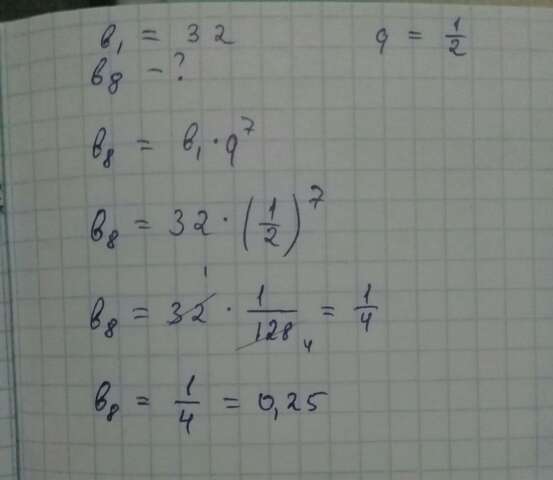 b₁ = 32 q = 1/2
b₈ - ?
b₈ = b₁ · q⁷
b₈ = 32 · (1/2)⁷
b₈ = 32 1 · 1/128 4 = 1/4
b₈ = 1/4 = 0,25